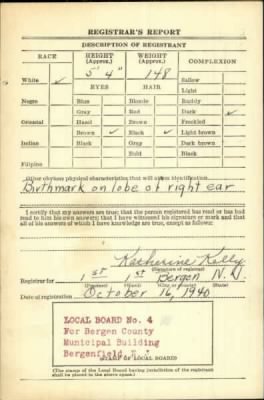 REGISTRAR'S REPORT
DESCRIPTION OF REGISTRANT
RACE HEIGHT (Approx.) WEIGHT (Approx.) COMPLEXION
5' 4" 148
White ✓ Sallow
EYES HAIR Light
Negro Blue Blonde Ruddy
Gray Red Dark ✓
Oriental Hazel Brown Freckled
Brown ✓ Black ✓ Light brown
Indian Black Gray Dark brown
Bald Black
Filipino
Other obvious physical characteristics that will aid in identification
Birthmark on lobe of right ear
I certify that my answers are true; that the person registered has read or has had
read to him his own answers; that I have witnessed his signature or mark and that
all of his answers of which I have knowledge are true, except as follows:
Katherine Kelly
(Signature of registrar)
Registrar for 1st 1st Bergen N.J.
(Precinct) (Ward) (City or county) (State)
Date of registration October 16, 1940
LOCAL BOARD No. 4
For Bergen County
Municipal Building
Bergenfield, N. J.
(STAMP OF LOCAL BOARD)
(The stamp of the Local Board having jurisdiction of the registrant
shall be placed in the above space.)